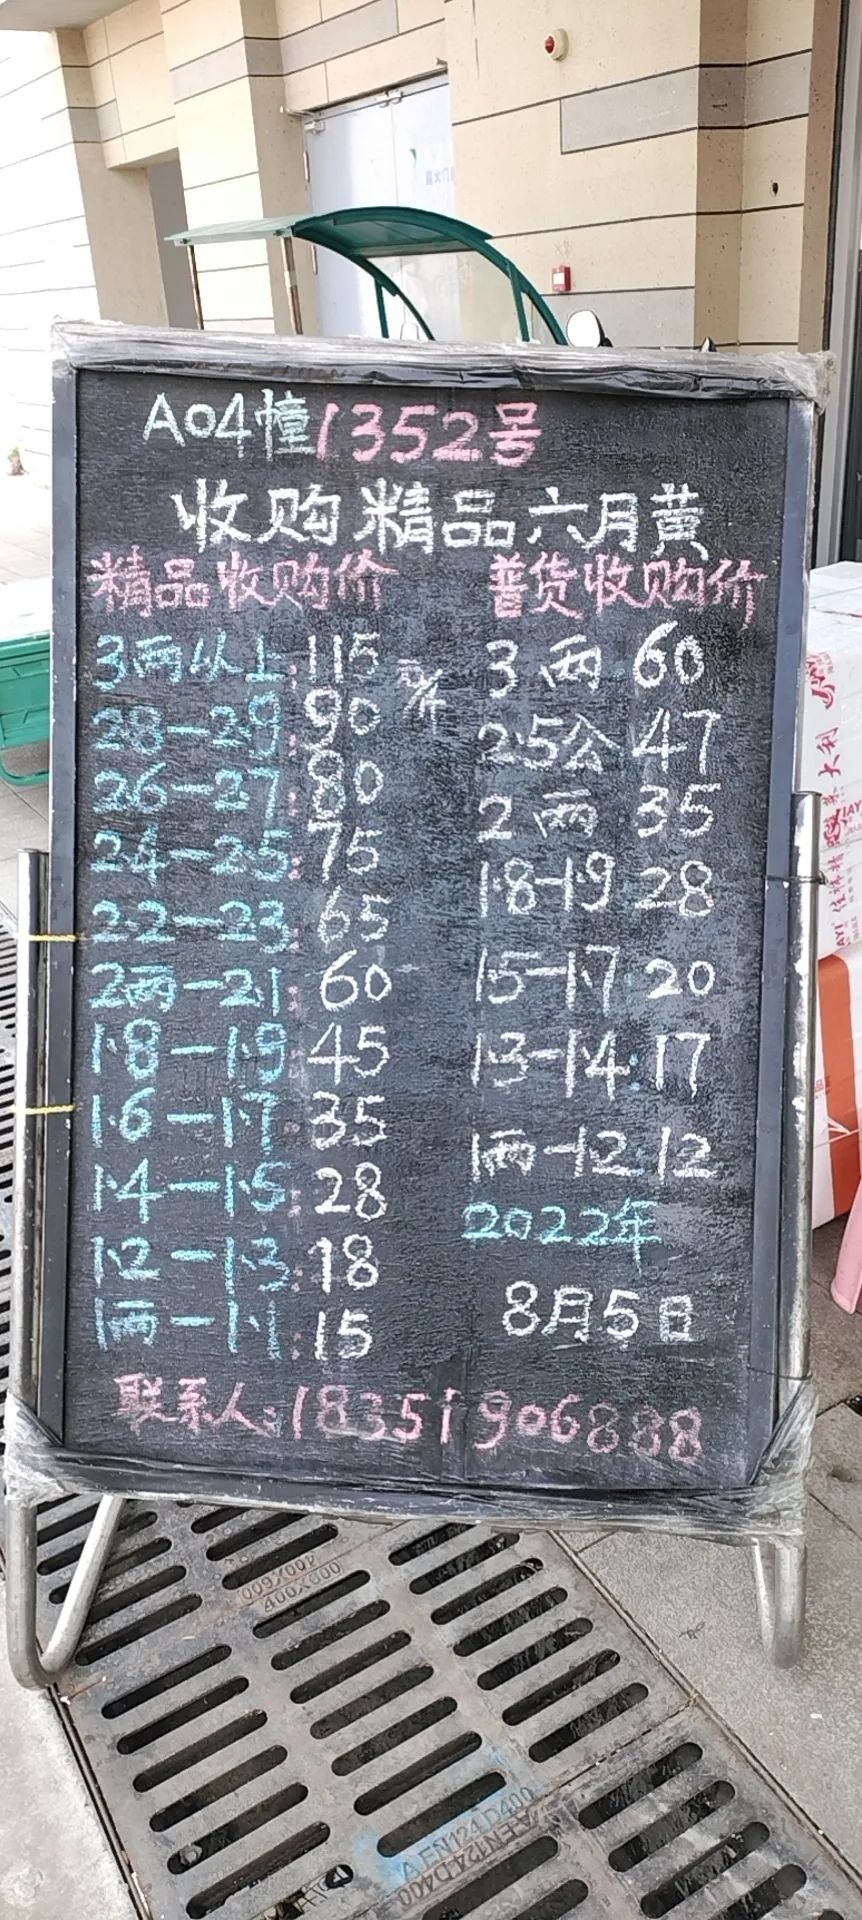 A04幢1352号
收购精品六月黄
精品收购价 普货收购价
3两以上:115元/斤 3两 60
28-29:90 25公 47
26-27:80 2两 35
24-25:75 1.8-1.9 28
22-23:65 1.5-1.7 20
2两-21:60 1.3-1.4:17
1.8-1.9:45 1两-12 12
1.6-1.7:35 2022年
1.4-1.5:28 8月5日
1.2-1.3:18
1两-1.1:15
联系人:18351906888
大利
400X600
400X600
A EN124 D400
A EN124 D400